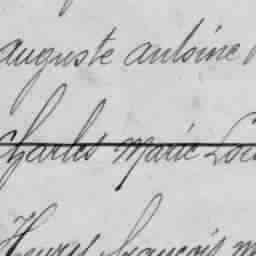 auguste antoine
Charles Marie Lou
Henry françois m